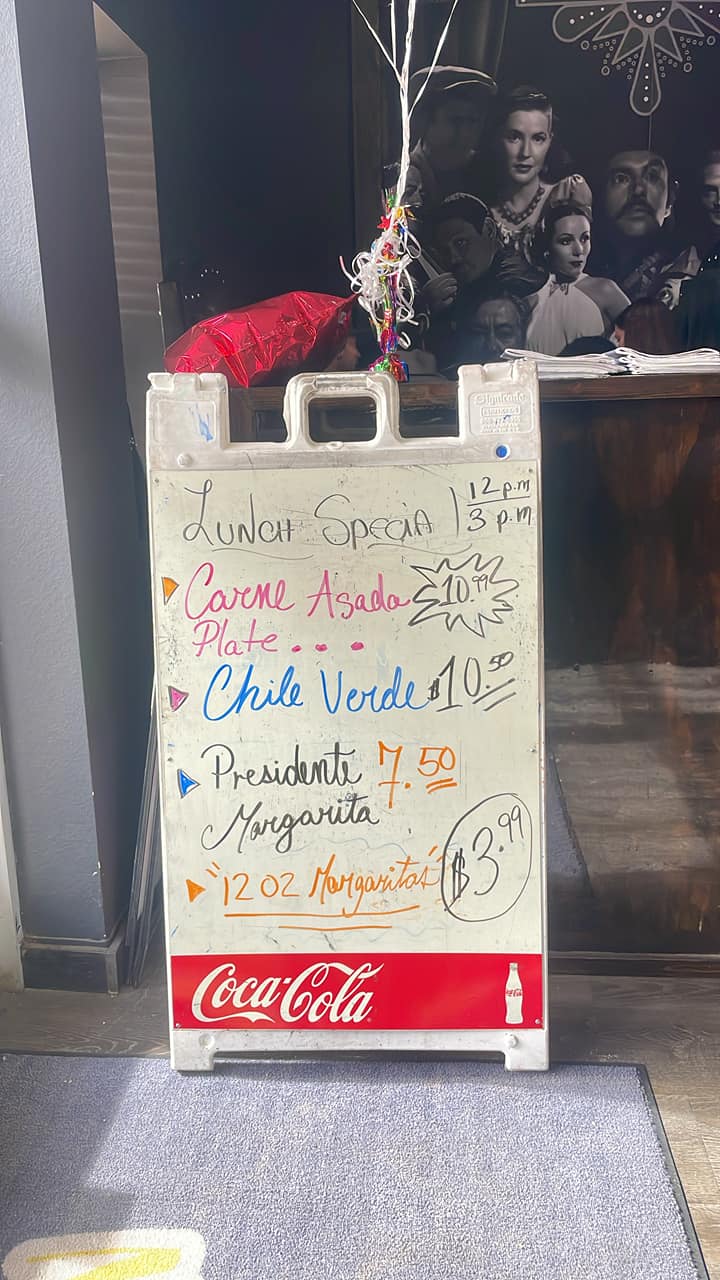 Signicade
Lunch Special 12 p.m
3 p.m
Carne Asada 10.99
Plate...
Chile Verde $10.50
Presidente 7.50
Margarita
"12 OZ Margaritas" $3.99
Coca-Cola